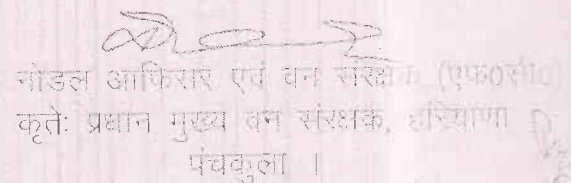 नोडल आफिसर एवं वन संरक्षक (एफ०सी०)
कृतेः प्रधान मुख्य वन संरक्षक, हरियाणा
पंचकुला ।